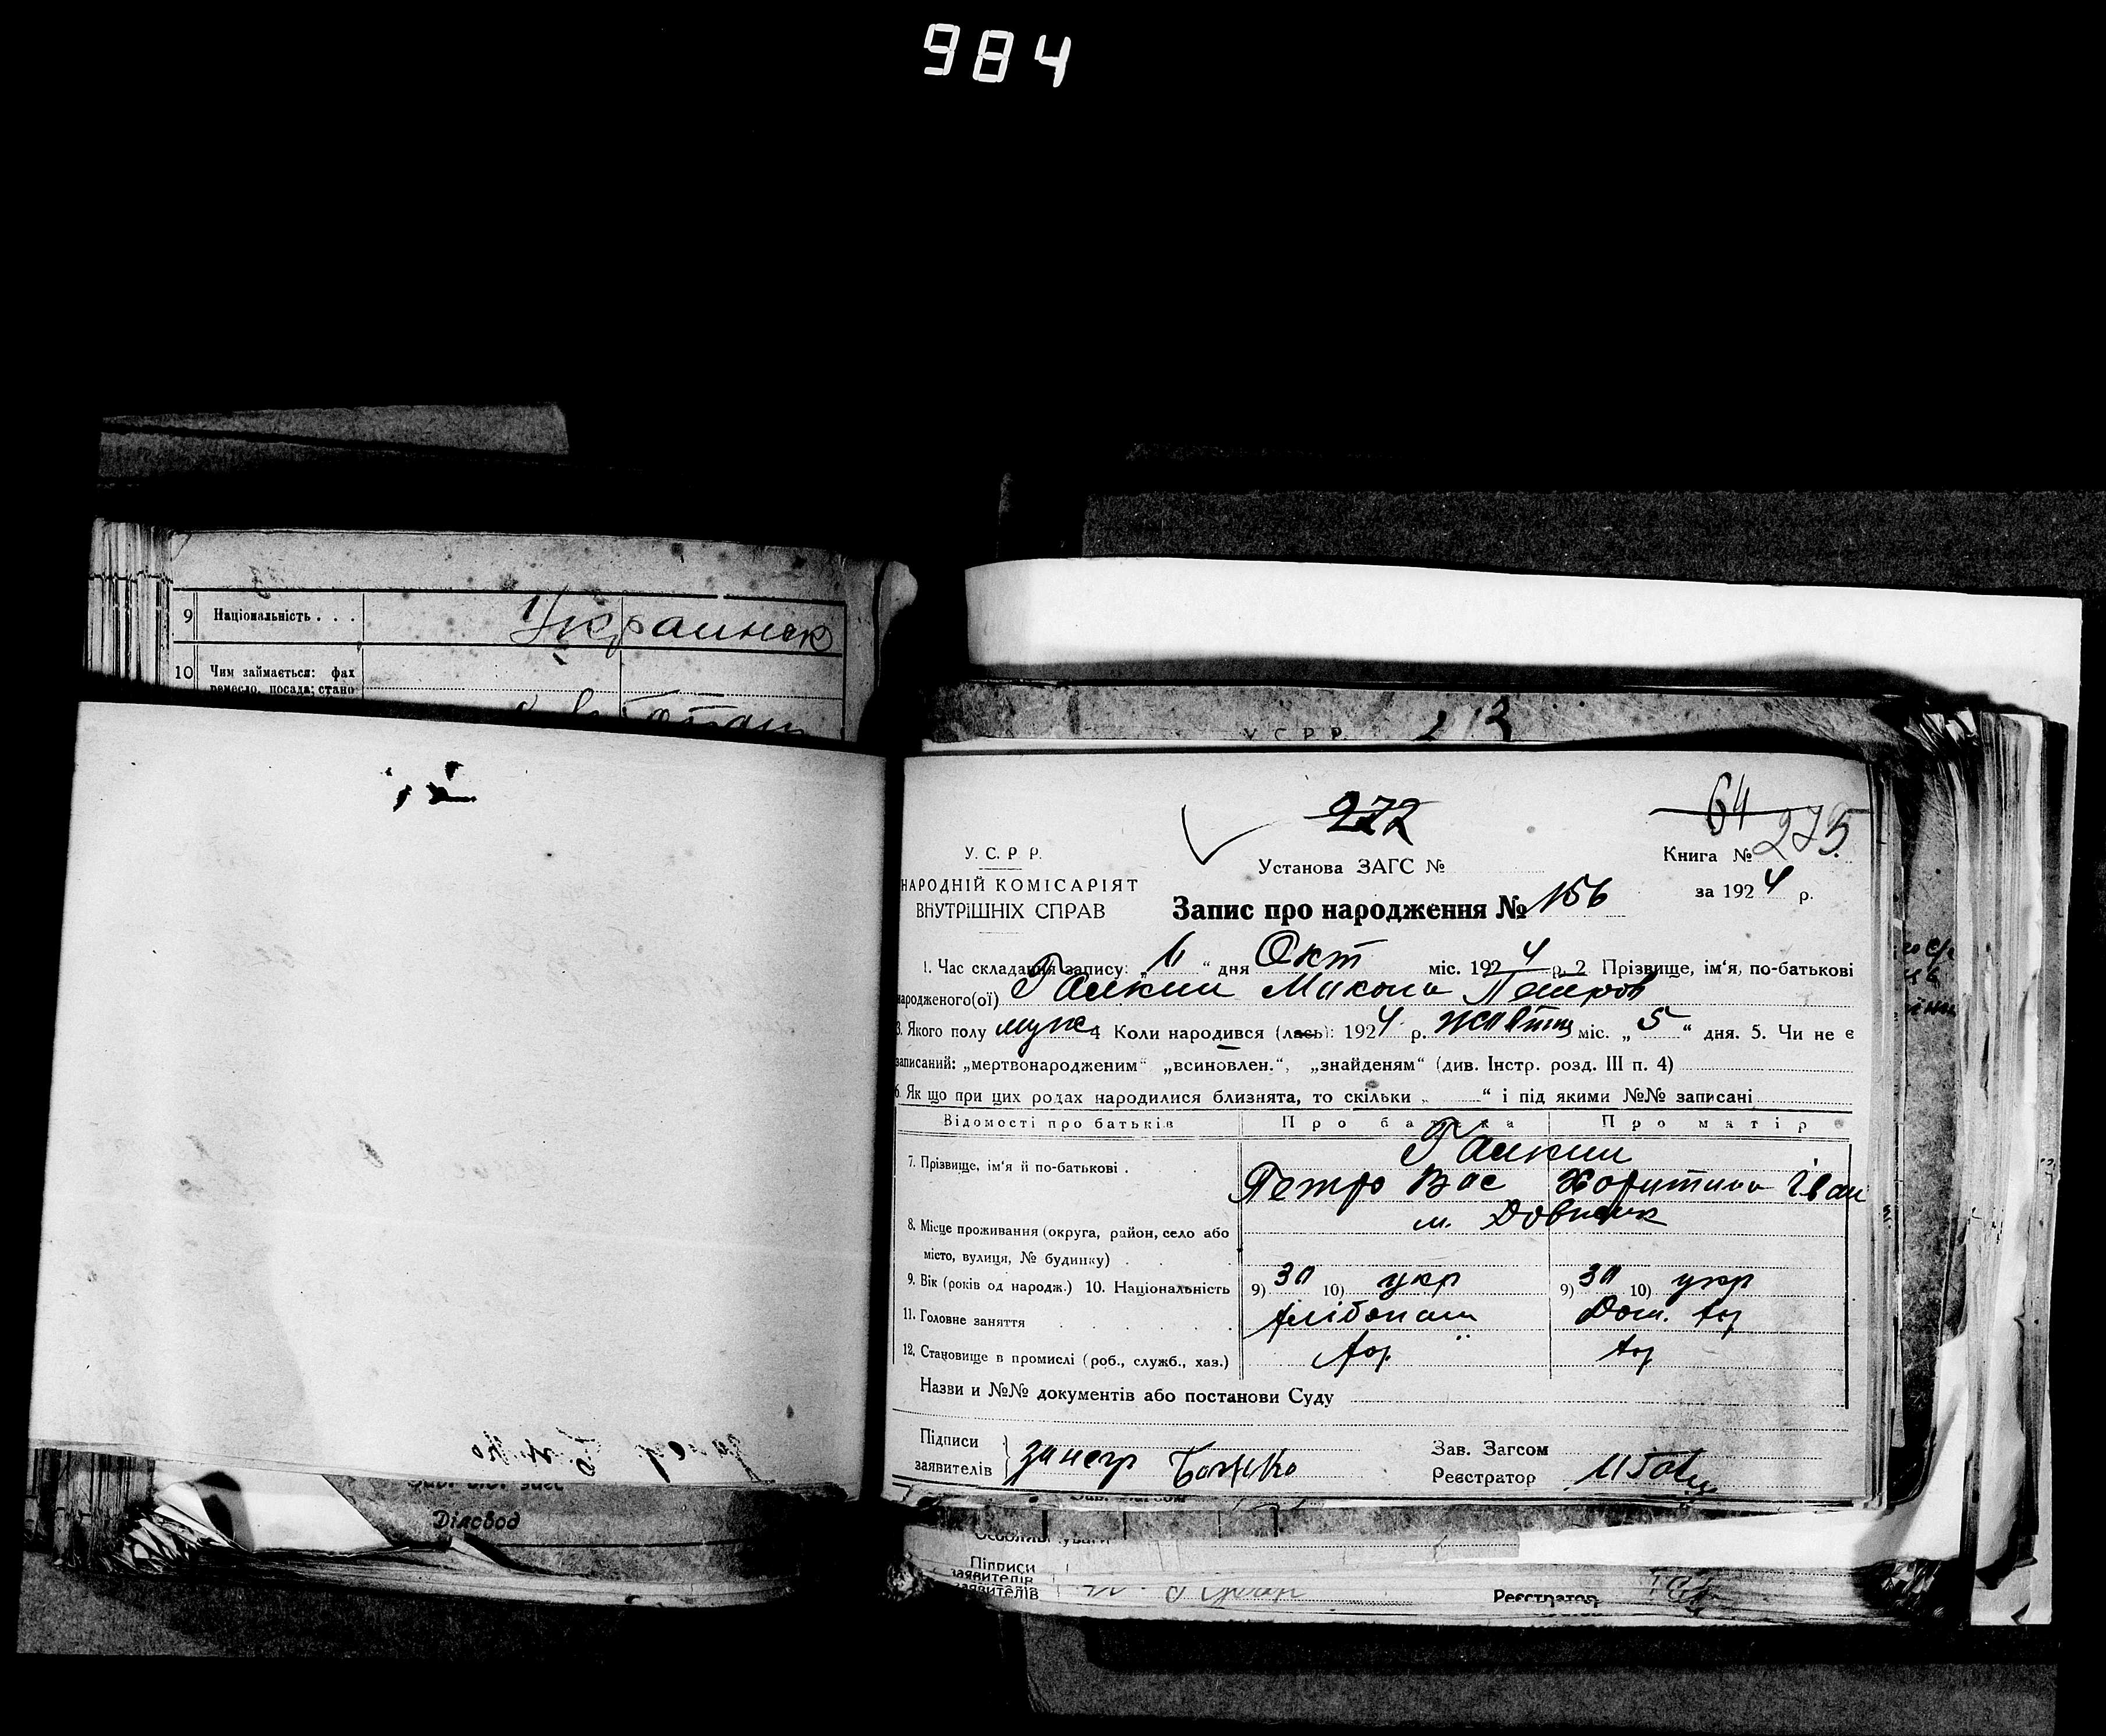 984
9 Національність . . . Украинск
10 Чим займається: фах
ремесло, посада; стано
Діловод
У С Р Р.
272
64
275
У. С. Р Р.
НАРОДНІЙ КОМІСАРІЯТ
ВНУТРІШНІХ СПРАВ
Установа ЗАГС №
Книга №
за 1924 р.
Запис про народження № 156
1. Час складання запису: „6“ дня Окт міс. 1924 р. 2 Прізвище, ім'я, по-батькові
народженого(ої) Микола Петров
3. Якого полу муж 4 Коли народився (лась): 1924 р. жовтня міс. „5“ дня. 5. Чи не є
записаний: „мертвонародженим“ „всиновлен.“, „знайденям“ (див. Інстр. розд. III п. 4)
6. Як що при цих родах народилися близнята, то скільки „ “ і під якими №№ записані
Відомості про батьків Про батька Про матір
7. Прізвище, ім'я й по-батькові .
Петро Вас Харитина Іван
8. Місце проживання (округа, район, село або м.
місто, вулиця, № будинку)
9. Вік (років од народж.) 10. Національність 9) 30 10) укр 9) 30 10) укр
11. Головне заняття хлібопаш Дом. хоз
12. Становище в промислі (роб., служб., хаз.) хоз хоз
Назви и №№ документів або постанови Суду
Підписи
заявителів
Зав. Загсом
Реєстратор
Підписи
заявителів
заявителів
Реєстратор